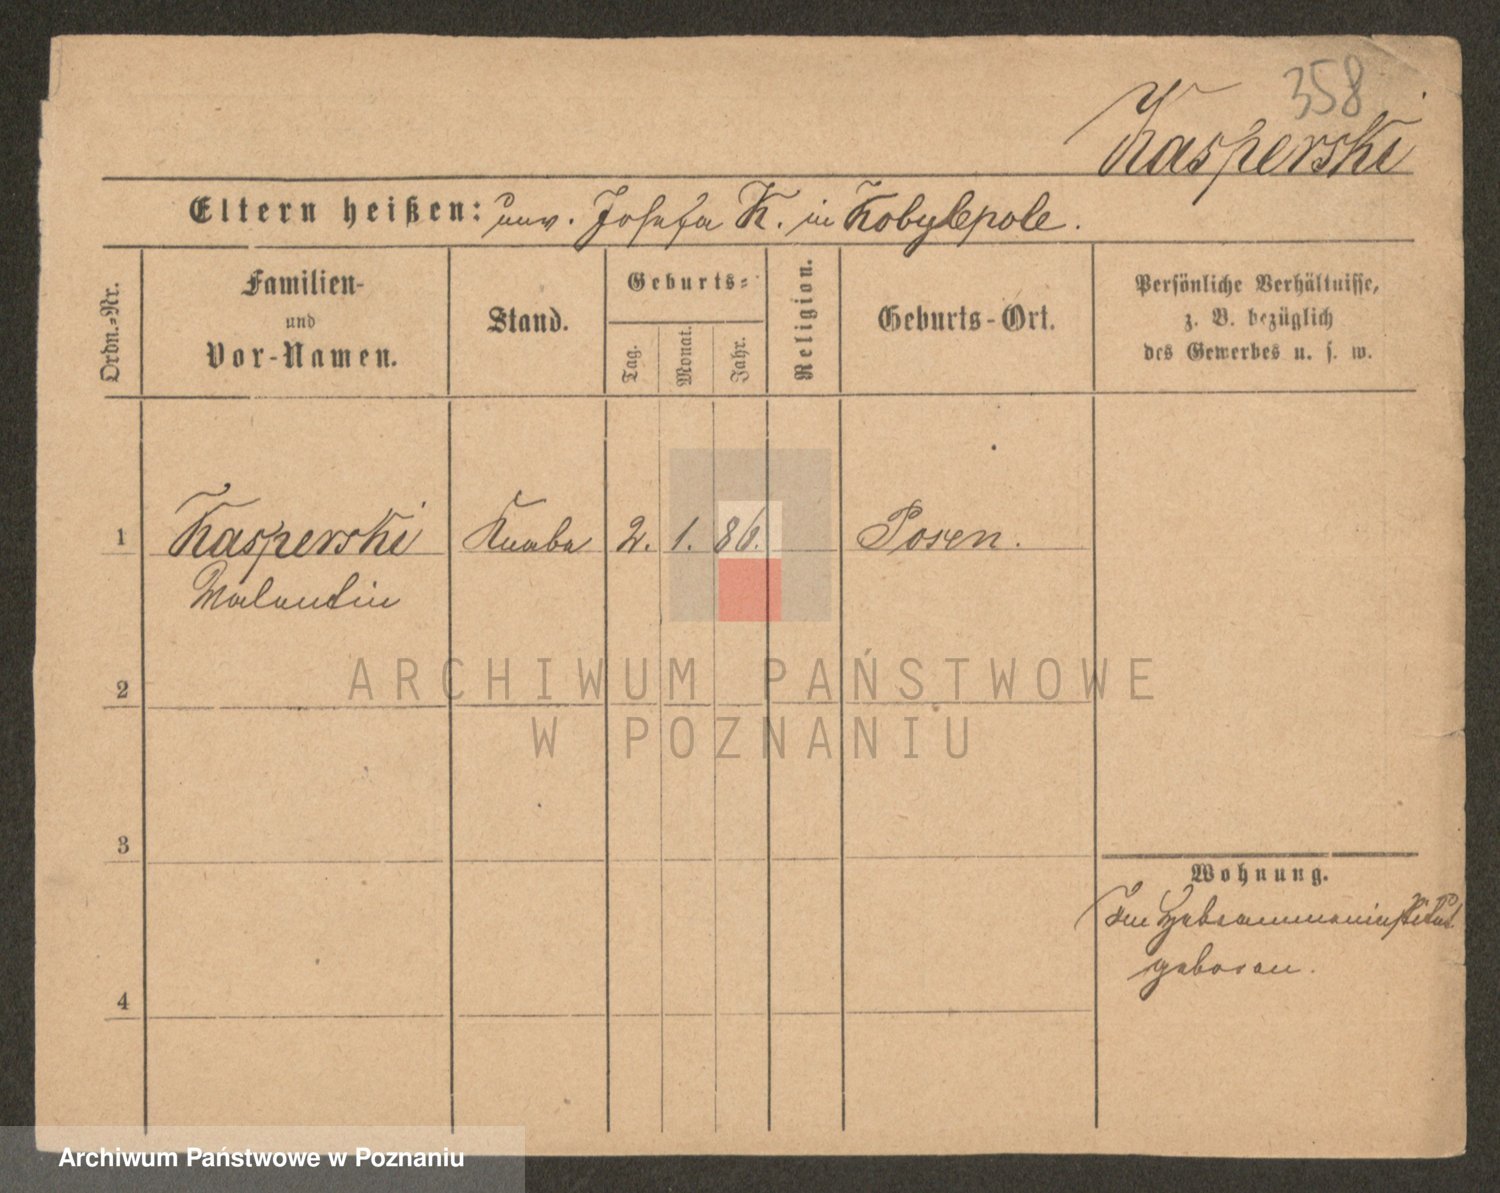 358
Kasperski
Eltern heißen: unv. Josefa K. in Kobylepole.
Ordn.-Nr.
Familien-
und
Vor-Namen.
Stand.
Geburts-
Tag.
Monat.
Jahr.
Religion.
Geburts-Ort.
Persönliche Verhältnisse,
z. B. bezüglich
des Gewerbes u. s. w.
1 Kasperski Knabe 2. 1. 86. Posen.
Valentin
2
3
4
Wohnung.
Im Hebammeninstitut
geboren.
ARCHIWUM PAŃSTWOWE
W POZNANIU
Archiwum Państwowe w Poznaniu